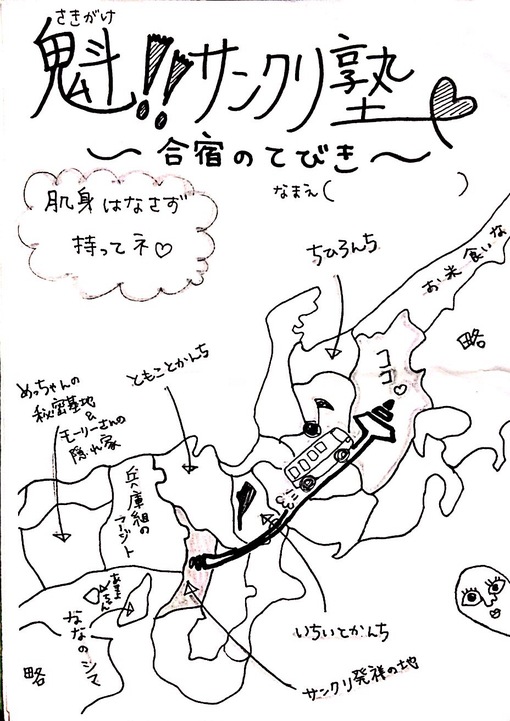 さきがけ
魁!!サンクリ塾
〜合宿のてびき〜
なまえ(　　　)
肌身はなさず
持ってネ♡
ちひろんち
お米食いな
略
ココ♡
ともことかんち
めっちゃんの
秘密基地
&
モーリーさんの
隠れ家
兵庫組の
アジト
ななのシマ
略
いちいとかんち
サンクリ発祥の地